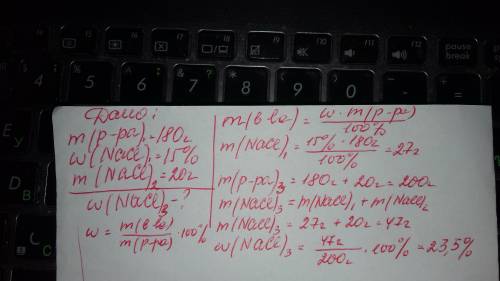 Дано:
m(р-ра)₁=180г
ω(NaCl)₁=15%
m(NaCl)₂=20г
ω(NaCl)₃-?
ω= m(в ва) / m(р-ра) ·100%
m(в ва) = ω·m(р-ра) / 100%
m(NaCl)₁ = 15%·180г / 100% =27г
m(р-ра)₃=180г+20г=200г
m(NaCl)₃=m(NaCl)₁+m(NaCl)₂
m(NaCl)₃=27г+20г=47г
ω(NaCl)₃= 47г / 200г ·100%=23,5%
F10
F11
F12
pause
break
4
5
6
7
8
9
0
%
^
&
*
(
)